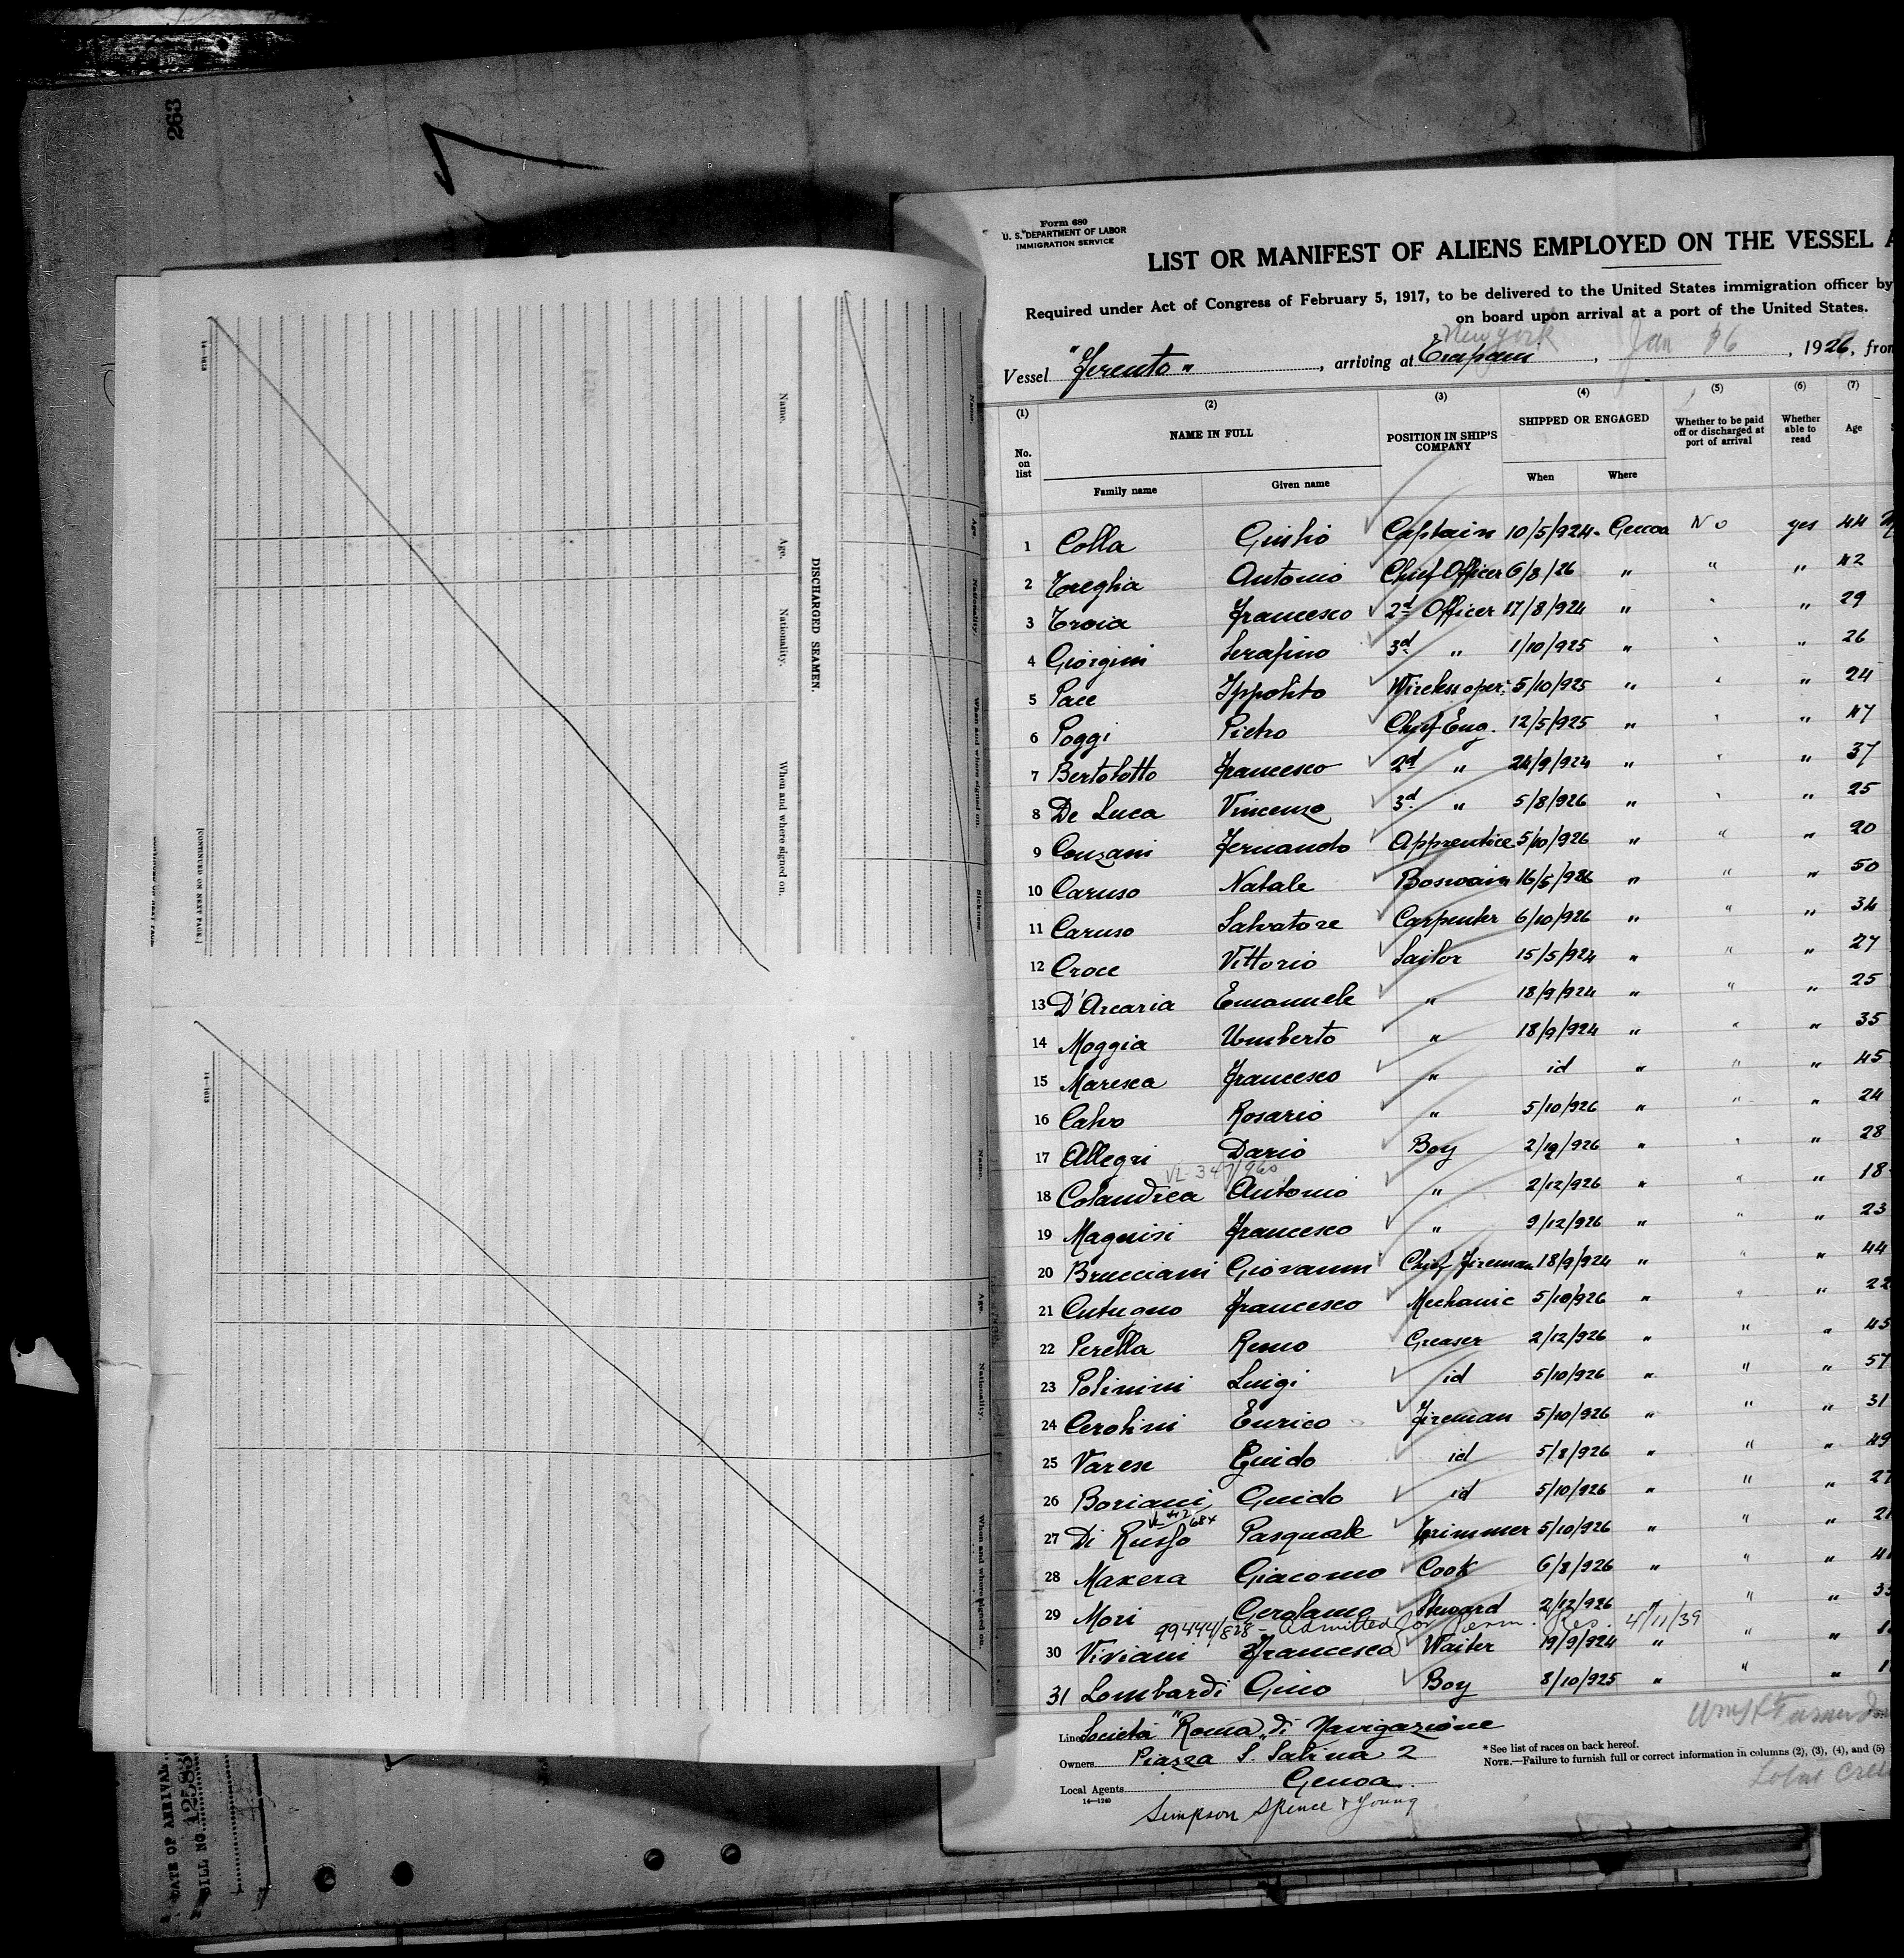 263
Form 680
U. S. DEPARTMENT OF LABOR
IMMIGRATION SERVICE
LIST OR MANIFEST OF ALIENS EMPLOYED ON THE VESSEL A
Required under Act of Congress of February 5, 1917, to be delivered to the United States immigration officer by
on board upon arrival at a port of the United States.
New York
Vessel , arriving at , Jan 6, 1926, from
(1) (2) (3) (4) (5) (6) (7)
No. on list
NAME IN FULL
Family name Given name
POSITION IN SHIP'S COMPANY
SHIPPED OR ENGAGED
When Where
Whether to be paid off or discharged at port of arrival
Whether able to read
Age
1 Colla Giulio Captain 10/5/924. Genoa No yes 44
2 Treglia Antonio Chief Officer 6/8/26 " " " 42
3 Troia Francesco 2d Officer 17/8/924 " " " 29
4 Giorgini Serafino 3d " 1/10/925 " " " 26
5 Pace Ippolito Wireless oper. 5/10/925 " " " 24
6 Poggi Pietro Chief Eng. 12/5/925 " " " 47
7 Bertolotto Francesco 2d " 24/9/924 " " " 37
8 De Luca Vincenzo 3d " 5/8/926 " " " 25
9 Conzani Fernando Apprentice 5/10/926 " " " 20
10 Caruso Natale Boswain 16/5/926 " " " 50
11 Caruso Salvatore Carpenter 6/10/926 " " " 34
12 Croce Vittorio Sailor 15/5/924 " " " 27
13 D'Arcaria Emanuele " 18/9/924 " " " 25
14 Moggia Umberto " 18/9/924 " " " 35
15 Maresca Francesco " id " " " 45
16 Calvo Rosario " 5/10/926 " " " 24
17 Allegri Dario Boy 2/12/926 " " " 28
18 Colandrea Antonio " 2/12/926 " " " 18
19 Magnisi Francesco " 9/12/926 " " " 23
20 Brucciani Giovanni Chief Fireman 18/9/924 " " " 44
21 Cutugno Francesco Mechanic 5/10/926 " " " 22
22 Perella Remo Greaser 2/12/926 " " " 45
23 Polinini Luigi id 5/10/926 " " " 57
24 Cerolini Enrico Fireman 5/10/926 " " " 31
25 Varese Guido id 5/8/926 " " " 49
26 Boriani Guido id 5/10/926 " " " 27
27 Di Russo Pasquale Trimmer 5/10/926 " " " 21
28 Maxera Giacomo Cook 6/8/926 " " "
29 Mori Gerolamo Steward 2/12/926 " " " 33
99444/828 - admitted for Perm. Res. 4/11/39
30 Viviani Francesco Waiter 19/9/924 " " "
31 Lombardi Gino Boy 8/10/925 " " "
Line Società "Roma" di Navigazione
Owners Piazza S. Sabina 2
Local Agents Genoa.
14—1240
Simpson Spence & Young
* See list of races on back hereof.
NOTE.—Failure to furnish full or correct information in columns (2), (3), (4), and (5)
DISCHARGED SEAMEN.
Name. Age. Nationality. When and where signed on.
[CONTINUED ON NEXT PAGE.]
14—1013
Name. Age. Nationality. When and where signed on. Sickness.
Name. Age. Nationality. When and where signed on.
14—1013
DATE OF ARRIVAL
BILL NO.